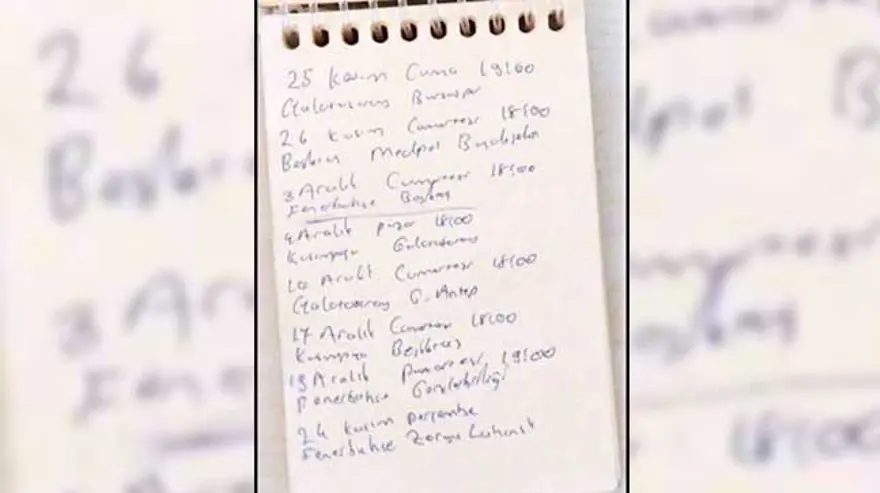 25 Kasım Cuma 19:00
Galatasaray Bursaspor
26 Kasım Cumartesi 18:00
Beşiktaş Medipol Başakşehir
3 Aralık Cumartesi 18:00
Fenerbahçe Beşiktaş
4 Aralık Pazar 18:00
Kasımpaşa Galatasaray
10 Aralık Cumartesi 18:00
Galatasaray G. Antep
17 Aralık Cumartesi 18:00
Kasımpaşa Beşiktaş
19 Aralık Pazartesi 19:00
Fenerbahçe Gençlerbirliği
24 Kasım perşembe
Fenerbahçe Zorya Luhansk